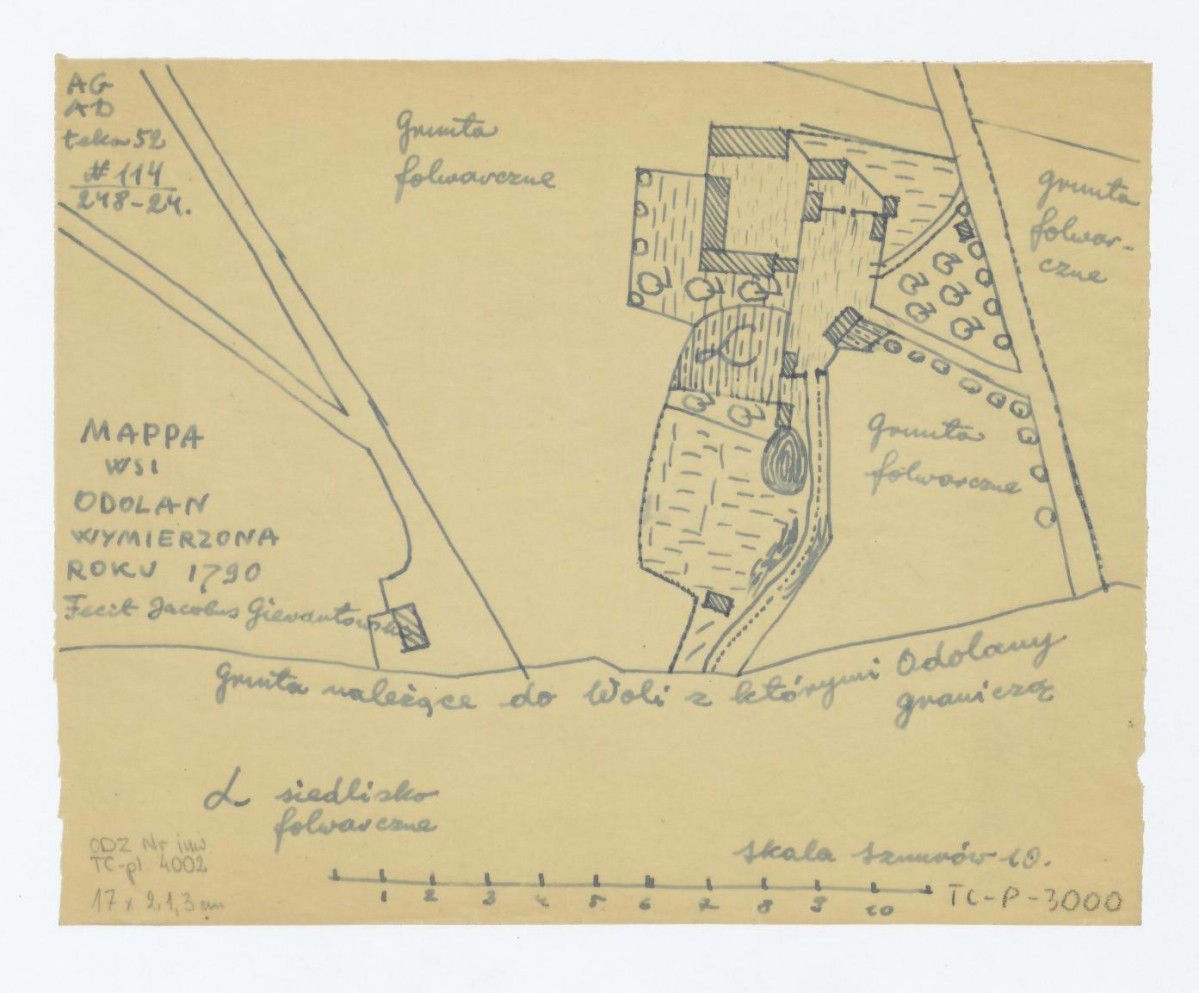 AG
AD
teka 52
#114
248-24.
Grunta
folwarczne
grunta
folwar-
czne
Grunta
folwarczne
MAPPA
WSI
ODOLAN
WYMIERZONA
ROKU 1790
Fecit Jacobus
grunta należące do Woli z którymi Odolany
graniczą
L siedlisko
folwarczne
skala sznurów 10.
1 2 3 4 5 6 7 8 9 10
ODZ Nr inw
TC-pl 4002
17 x 21,3 cm
TC-P-3000